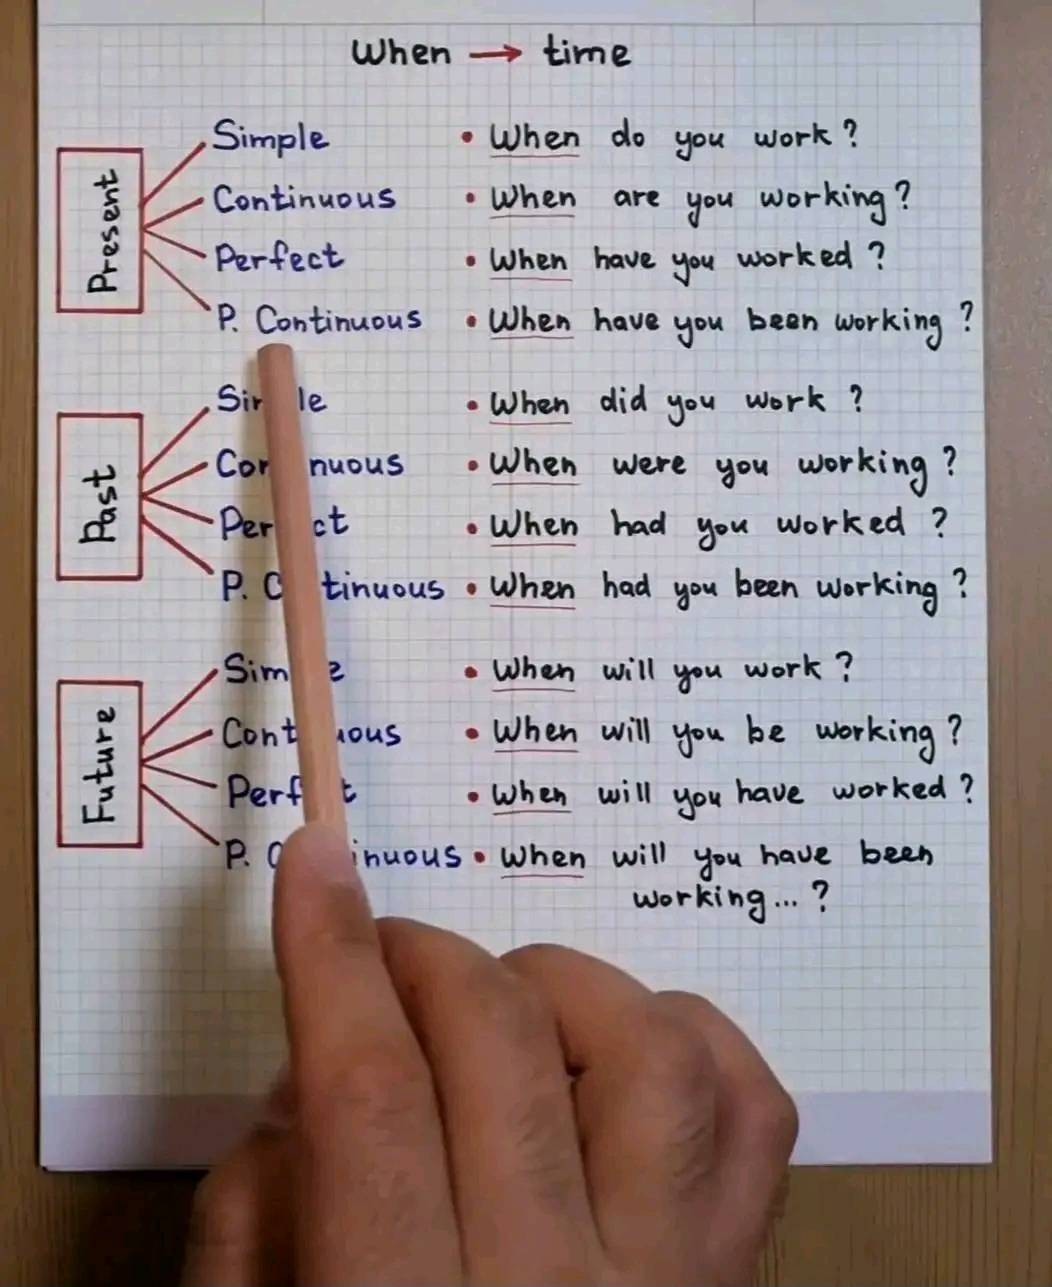 When → time
Present
Simple • When do you work?
Continuous • When are you working?
Perfect • When have you worked?
P. Continuous • When have you been working?
Past
Simple • When did you work?
Continuous • When were you working?
Perfect • When had you worked?
P. Continuous • When had you been working?
Future
Simple • When will you work?
Continuous • When will you be working?
Perfect • When will you have worked?
P. Continuous • When will you have been
working...?